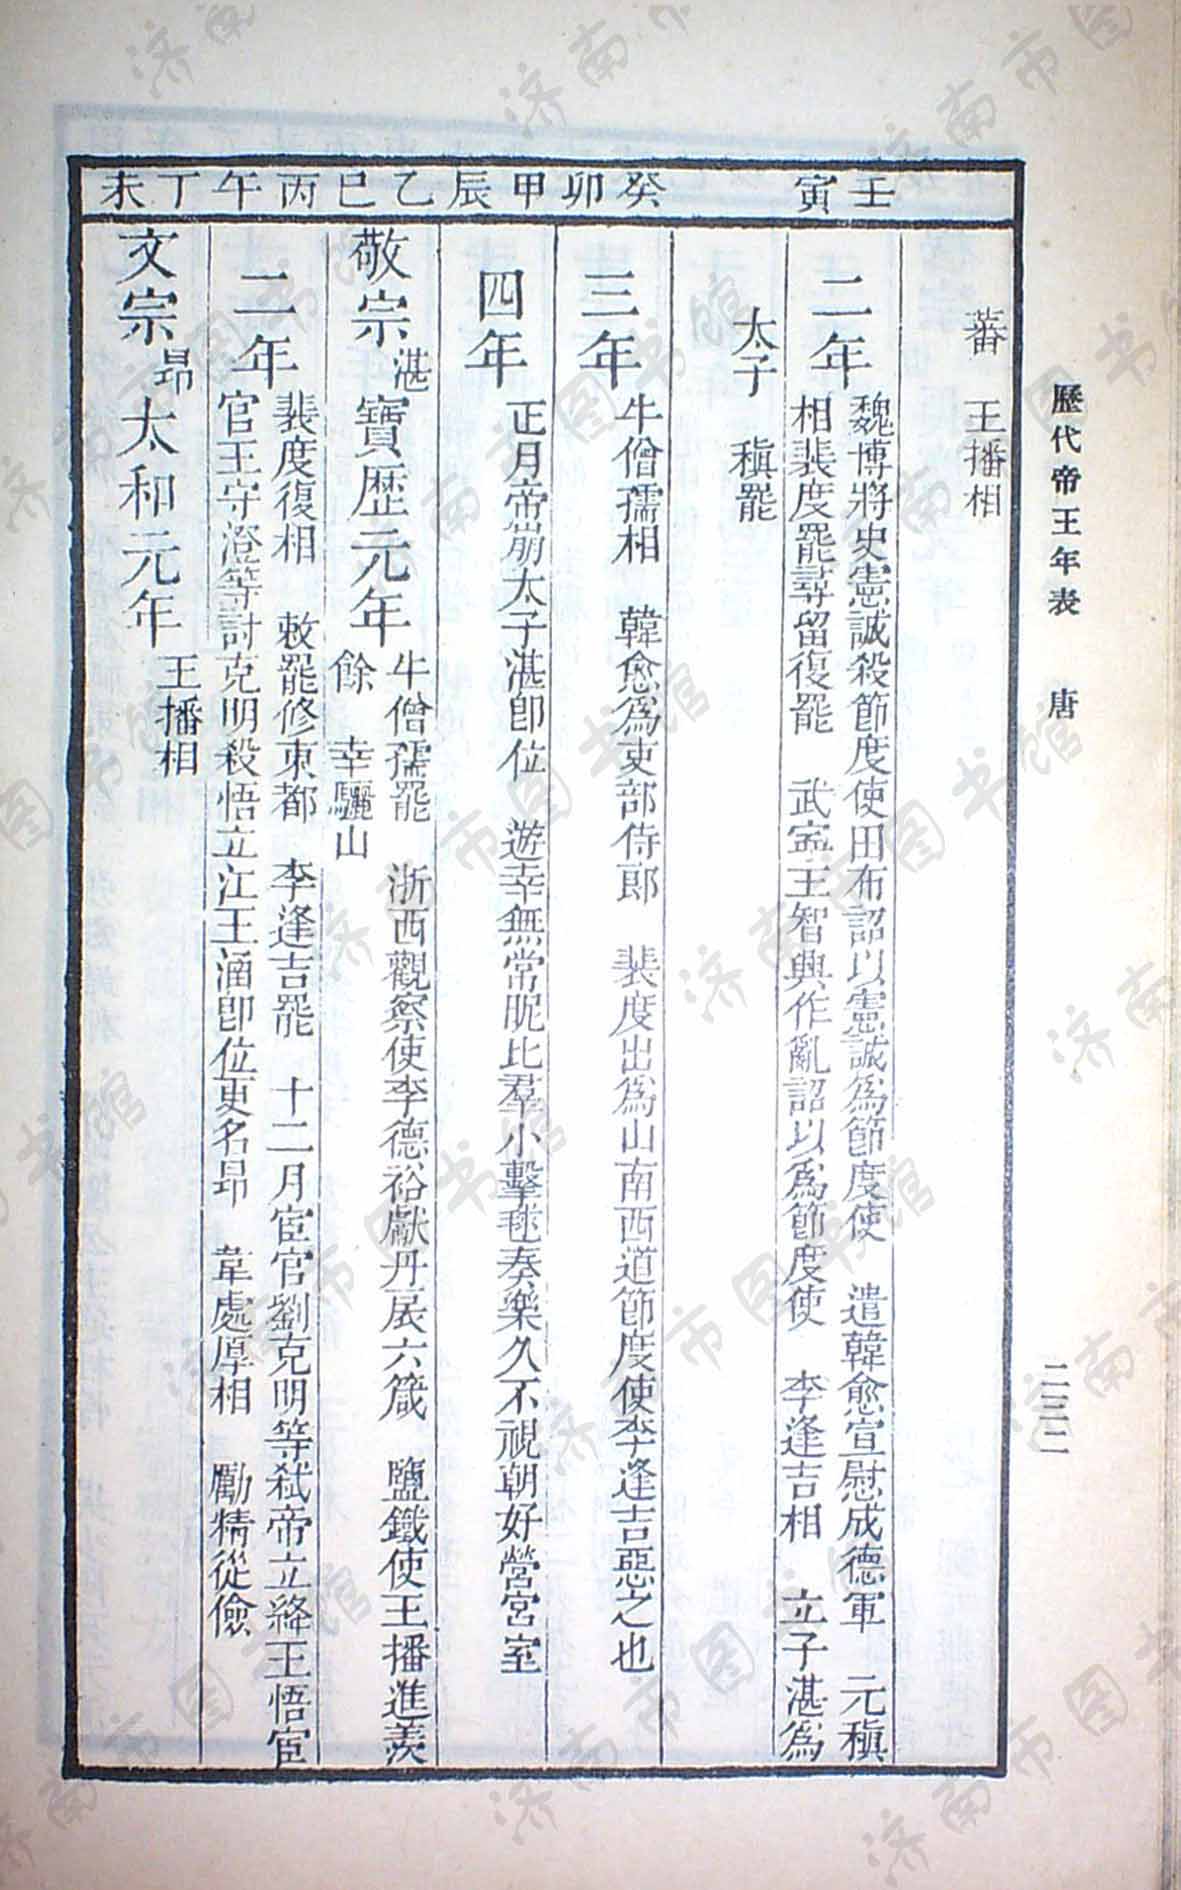 歷代帝王年表　唐　二三二
蕃　王播相
壬寅
二年
魏博將史憲誠殺節度使田布詔以憲誠爲節度使　遣韓愈宣慰成德軍　元稹
相裴度罷尋留復罷　武寧王智興作亂詔以爲節度使　李逢吉相　立子湛爲
太子　稹罷
癸卯
三年
牛僧孺相　韓愈爲吏部侍郎　裴度出爲山南西道節度使李逢吉惡之也
甲辰
四年
正月帝崩太子湛卽位　遊幸無常昵比羣小擊毬奏樂久不視朝好營宮室
乙巳
敬宗湛寶歷元年
牛僧孺罷　浙西觀察使李德裕獻丹扆六箴　鹽鐵使王播進羨
餘　幸驪山
丙午
二年
裴度復相　敕罷修東都　李逢吉罷　十二月宦官劉克明等弒帝立絳王悟宦
官王守澄等討克明殺悟立江王涵卽位更名昻　韋處厚相　勵精從儉
丁未
文宗昻太和元年
王播相
济南市图书馆